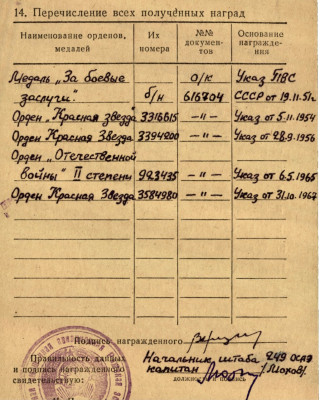 14. Перечисление всех полученных наград
Наименование орденов, медалей Их номера №№ документов Основание награждения
Медаль „За боевые о/к Указ ПВС
заслуги". б/н 616704 СССР от 19.11.51г.
Орден „Красная звезда" 3316615 —"— Указ от 5.11.1954
Орден Красная Звезда 3394200 —"— Указ от 28.9.1956
Орден „Отечественной
войны" II степени 923435 —"— Указ от 6.5.1965
Орден Красная Звезда 3584980 —"— Указ от 31.10.1967
Подпись награжденного
Правильность данных Начальник штаба 249
и подпись награжденного капитан
свидетельствую: должность и подпись